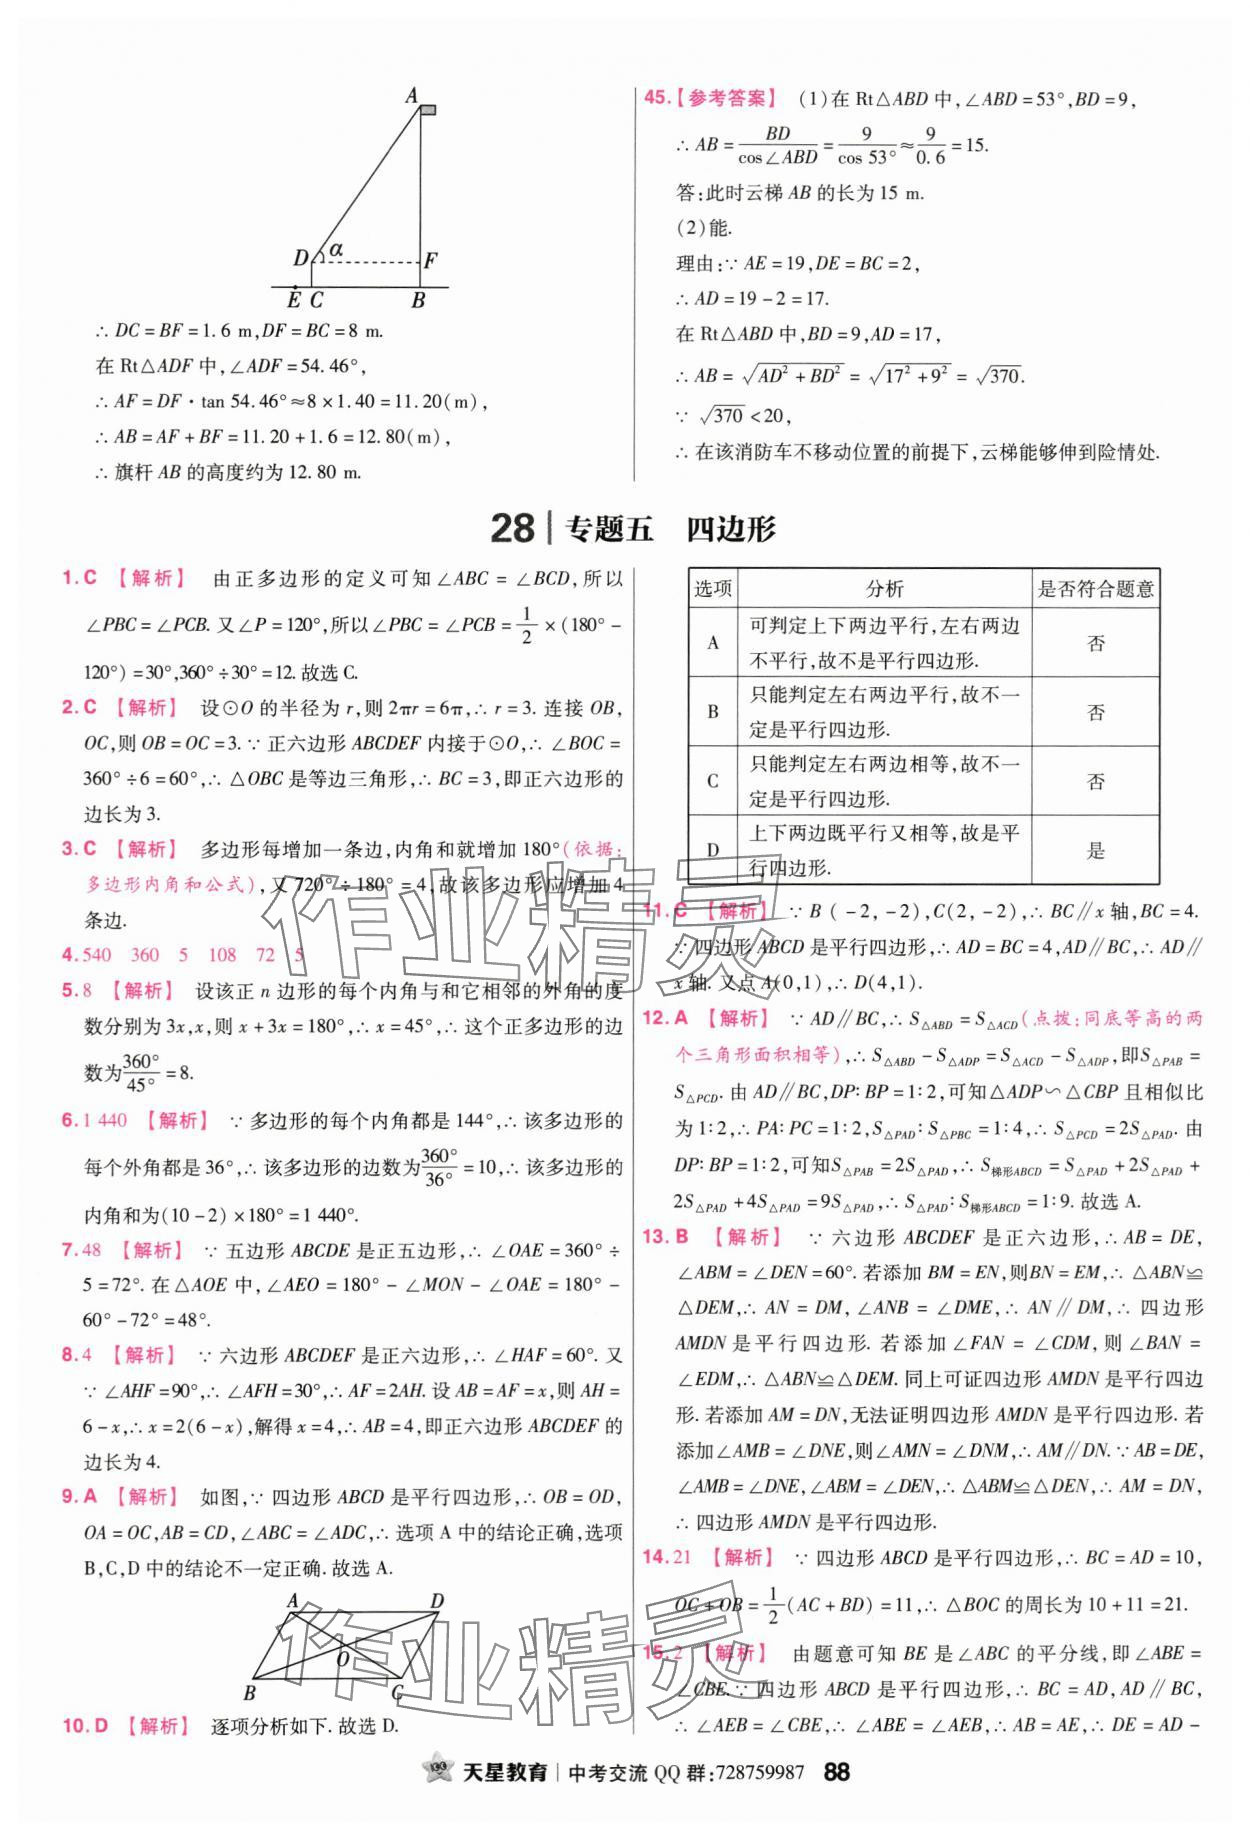 A
D α F
E C B
∴ DC = BF = 1.6 m,DF = BC = 8 m.
在 Rt△ADF 中,∠ADF = 54.46°,
∴ AF = DF · tan 54.46° ≈ 8 × 1.40 = 11.20(m),
∴ AB = AF + BF = 11.20 + 1.6 = 12.80(m),
∴ 旗杆 AB 的高度约为 12.80 m.
45.【参考答案】 (1)在 Rt△ABD 中,∠ABD = 53°,BD = 9,
∴ AB = BD/cos∠ABD = 9/cos 53° ≈ 9/0.6 = 15.
答:此时云梯 AB 的长为 15 m.
(2)能.
理由:∵ AE = 19,DE = BC = 2,
∴ AD = 19 - 2 = 17.
在 Rt△ABD 中,BD = 9,AD = 17,
∴ AB = √(AD² + BD²) = √(17² + 9²) = √370.
∵ √370 < 20,
∴ 在该消防车不移动位置的前提下,云梯能够伸到险情处.
28 | 专题五 四边形
1.C 【解析】 由正多边形的定义可知∠ABC = ∠BCD,所以
∠PBC = ∠PCB. 又∠P = 120°,所以∠PBC = ∠PCB = 1/2 × (180° -
120°) = 30°,360° ÷ 30° = 12. 故选 C.
2.C 【解析】 设⊙O 的半径为 r,则 2πr = 6π,∴ r = 3. 连接 OB,
OC,则 OB = OC = 3. ∵ 正六边形 ABCDEF 内接于⊙O,∴ ∠BOC =
360° ÷ 6 = 60°,∴ △OBC 是等边三角形,∴ BC = 3,即正六边形的
边长为 3.
3.C 【解析】 多边形每增加一条边,内角和就增加 180°(依据:
多边形内角和公式),又 720° ÷ 180° = 4,故该多边形应增加 4
条边.
4.540 360 5 108 72 5
5.8 【解析】 设该正 n 边形的每个内角与和它相邻的外角的度
数分别为 3x,x,则 x + 3x = 180°,∴ x = 45°,∴ 这个正多边形的边
数为 360°/45° = 8.
6.1 440 【解析】 ∵ 多边形的每个内角都是 144°,∴ 该多边形的
每个外角都是 36°,∴ 该多边形的边数为 360°/36° = 10,∴ 该多边形的
内角和为(10 - 2) × 180° = 1 440°.
7.48 【解析】 ∵ 五边形 ABCDE 是正五边形,∴ ∠OAE = 360° ÷
5 = 72°. 在△AOE 中,∠AEO = 180° - ∠MON - ∠OAE = 180° -
60° - 72° = 48°.
8.4 【解析】 ∵ 六边形 ABCDEF 是正六边形,∴ ∠HAF = 60°. 又
∵ ∠AHF = 90°,∴ ∠AFH = 30°,∴ AF = 2AH. 设 AB = AF = x,则 AH =
6 - x,∴ x = 2(6 - x),解得 x = 4,∴ AB = 4,即正六边形 ABCDEF 的
边长为 4.
9.A 【解析】 如图,∵ 四边形 ABCD 是平行四边形,∴ OB = OD,
OA = OC,AB = CD,∠ABC = ∠ADC,∴ 选项 A 中的结论正确,选项
B,C,D 中的结论不一定正确. 故选 A.
A D
O
B C
10.D 【解析】 逐项分析如下. 故选 D.
选项 分析 是否符合题意
A 可判定上下两边平行,左右两边不平行,故不是平行四边形. 否
B 只能判定左右两边平行,故不一定是平行四边形. 否
C 只能判定左右两边相等,故不一定是平行四边形. 否
D 上下两边既平行又相等,故是平行四边形. 是
11.C 【解析】 ∵ B ( -2, -2),C(2, -2),∴ BC∥x 轴,BC = 4.
∵ 四边形 ABCD 是平行四边形,∴ AD = BC = 4,AD∥BC,∴ AD∥
x 轴. 又点 A(0,1),∴ D(4,1).
12.A 【解析】 ∵ AD∥BC,∴ S△ABD = S△ACD(点拨:同底等高的两
个三角形面积相等),∴ S△ABD - S△ADP = S△ACD - S△ADP,即S△PAB =
S△PCD. 由 AD∥BC,DP∶BP = 1∶2,可知△ADP∽△CBP 且相似比
为 1∶2,∴ PA∶PC = 1∶2,S△PAD∶S△PBC = 1∶4,∴ S△PCD = 2S△PAD. 由
DP∶BP = 1∶2,可知S△PAB = 2S△PAD,∴ S梯形ABCD = S△PAD + 2S△PAD +
2S△PAD + 4S△PAD = 9S△PAD,∴ S△PAD∶S梯形ABCD = 1∶9. 故选 A.
13.B 【解析】 ∵ 六边形 ABCDEF 是正六边形,∴ AB = DE,
∠ABM = ∠DEN = 60°. 若添加 BM = EN,则BN = EM,∴ △ABN≌
△DEM,∴ AN = DM,∠ANB = ∠DME,∴ AN∥DM,∴ 四边形
AMDN 是平行四边形. 若添加∠FAN = ∠CDM,则∠BAN =
∠EDM,∴ △ABN≌△DEM. 同上可证四边形 AMDN 是平行四边
形. 若添加 AM = DN,无法证明四边形 AMDN 是平行四边形. 若
添加∠AMB = ∠DNE,则∠AMN = ∠DNM,∴ AM∥DN. ∵ AB = DE,
∠AMB = ∠DNE,∠ABM = ∠DEN,∴ △ABM≌△DEN,∴ AM = DN,
∴ 四边形 AMDN 是平行四边形.
14.21 【解析】 ∵ 四边形 ABCD 是平行四边形,∴ BC = AD = 10,
OC + OB = 1/2(AC + BD) = 11,∴ △BOC 的周长为 10 + 11 = 21.
15.2 【解析】 由题意可知 BE 是∠ABC 的平分线,即∠ABE =
∠CBE. ∵ 四边形 ABCD 是平行四边形,∴ BC = AD,AD∥BC,
∴ ∠AEB = ∠CBE,∴ ∠ABE = ∠AEB,∴ AB = AE,∴ DE = AD -
作业精灵
作业精灵
天星教育 | 中考交流 QQ 群:728759987 88